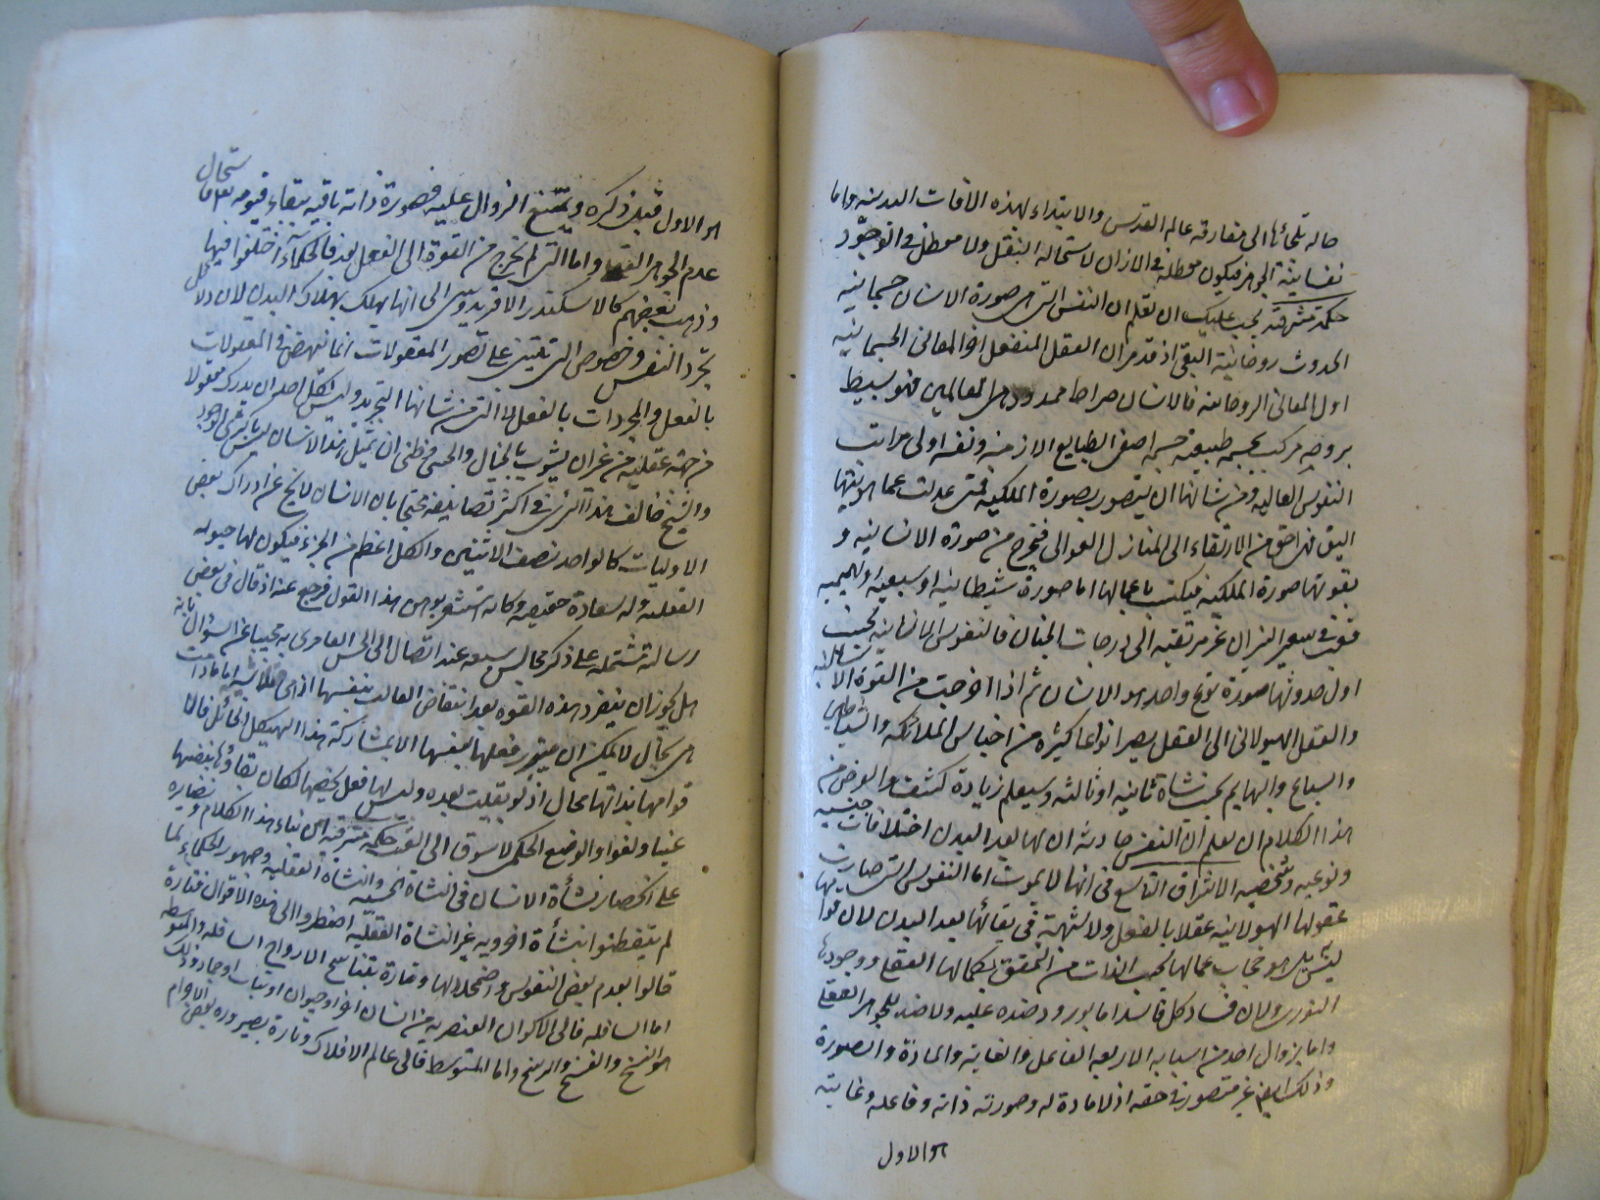 حاله تلجائها الى مفارقة عالم القدس والابتداء بهذه الآفات البدنيه واما
نفسانية الجوهر فيكون معطلة فى الازل لاستحالة النقل ولا معطل فى الوجود
حكمة مشرقية يجب عليك ان تعلم ان النفس التى هى صورة الانسان جسمانيه
الحدوث روحانية البقى اذ قد مر ان العقل المنفعل آخر المعانى الجسمانيه
اول المعانى الروحانيه فالانسان صراط ممدود بين العالمين فهو بسيط
بروحه مركب بجسمه طبيعة جسمه اصفى الطبايع الارضيه ونفسه اولى مراتب
النفوس العاليه ومن شانها ان يتصور بصورة الملكيه فمتى عدلت عما هو بغيتها
اليق فى احق من الارتقاء الى المنازل العوالى فتخرج من صورة الانسانيه و
بفوتها صورة الملكيه فيكتسب باعمالها اما صورة شيطانيه او سبعيه او بهيميه
فبقى فى سعير النيران غير مرتقيه الى درجات الجنان فالنفوس الانسانيه بحسب
اول حدوثها صورة نوع واحد هو الانسان ثم اذا اخرجت من القوة الانسانيه
والعقل الهيولانى الى العقل يصير انواعا كثيره من اجناس الملائكه والشياطين
والسباع والبهايم بحسب نشاة ثانيه او ثالثه وسيعلم زيادة كشف والغرض من
هذا الكلام ان يعلم ان النفس حادثه ان لها بعد البدن اختلافات جنسيه
ونوعيه وشخصيه الاشراق التاسع فى انها لا يموت اما النفوس التى صارت
عقولها الهيولانيه عقلا بالفعل ولا شبهة فى بقائها بعد البدن لان قوامها
ليس بالبدن بل هو حجاب عما لها بحسب الذات من التحقق بكمالها العقلى ووجودها
النورى ولان فساد كل فاسد اما بورود ضده عليه ولا ضد للجوهر العقلى
واما بزوال احد من اسبابه الاربعه الفاعل والغاية والمادة والصورة
وذلك ايضا غير متصور فى حقه اذ لا مادة له وصورته ذاته وفاعله وغايته
هو الاول
هو الاول قبل ذكره ويمتنع الزوال عليه فصورة ذاته باقيه ببقاء قيومه فاستحال
عدم الجوهر واما التى لم تخرج من القوة الى الفعل بعد فالحكماء اختلفوا فيها
وذهب بعضهم كالاسكندر الافريدوسى الى انها يهلك بهلاك البدن لان دلائل
تجرد النفس وخصوص التى تبتنى على تصور المعقولات انما ننهض فى المعقولات
بالفعل والمجردات بالفعل لا التى من شانها التجريد وليس لكل احد ان يدرك معقولا
من جهة عقليه من غير ان يشوب بالخيال والحس فى ظنى ان تمثل هذا الانسان ليس بكثير الوجود
والشيخ خالف هذا الراى فى اكثر تصانيفه محتجا بان الانسان لا يخ عن ادراك بعض
الاوليات كالواحد نصف الاثنين والكل اعظم من الجزء فيكون لها حيوة
العقليه وله سعادة حقيقيه وكانه استشعر بوهن هذا القول فرجع عنه اذ قال فى بعض
رسالة مشتمله على ذكر مجالس سبعه عند اتصال الى ابى الحسن العامرى به مجيبا عن السؤال بانه
هل يجوز ان ينفرد هذه القوه بعد انتقاض القالب بنفسها
هى بحال لا يمكن ان يتقرر فعلها بنفسها الا بمشاركة هذا الهيكل الحائل فاما
قوامها بذاتها محال اذ لو بقيت بعده وليس لها فعل يخصها لكان بقاؤها بنفسها
عبثا ولغوا والوضع الحكمى لا يسوق الى العبث حكمة مشرقية ان بناء هذا الكلام ونظايره
على انحصار نشأة الانسان فى النشأة الحسيه والنشأة العقليه وجمهور الحكماء لما
لم يتفطنوا بنشأة اخرويه غير النشاة العقليه اضطروا الى هذه الاقوال فتارة
قالوا بعدم بعض النفوس واضمحلالها وتارة بتناسخ الارواح السافله والمتوسطه
اما السافله فالى الاكوان العنصريه من انسان اخر او حيوان او نبات او جماد وذلك
هو النسخ والفسخ والرسخ واما المتوسط فالى عالم الافلاك وتارة بصيرورة بعض الاجرام